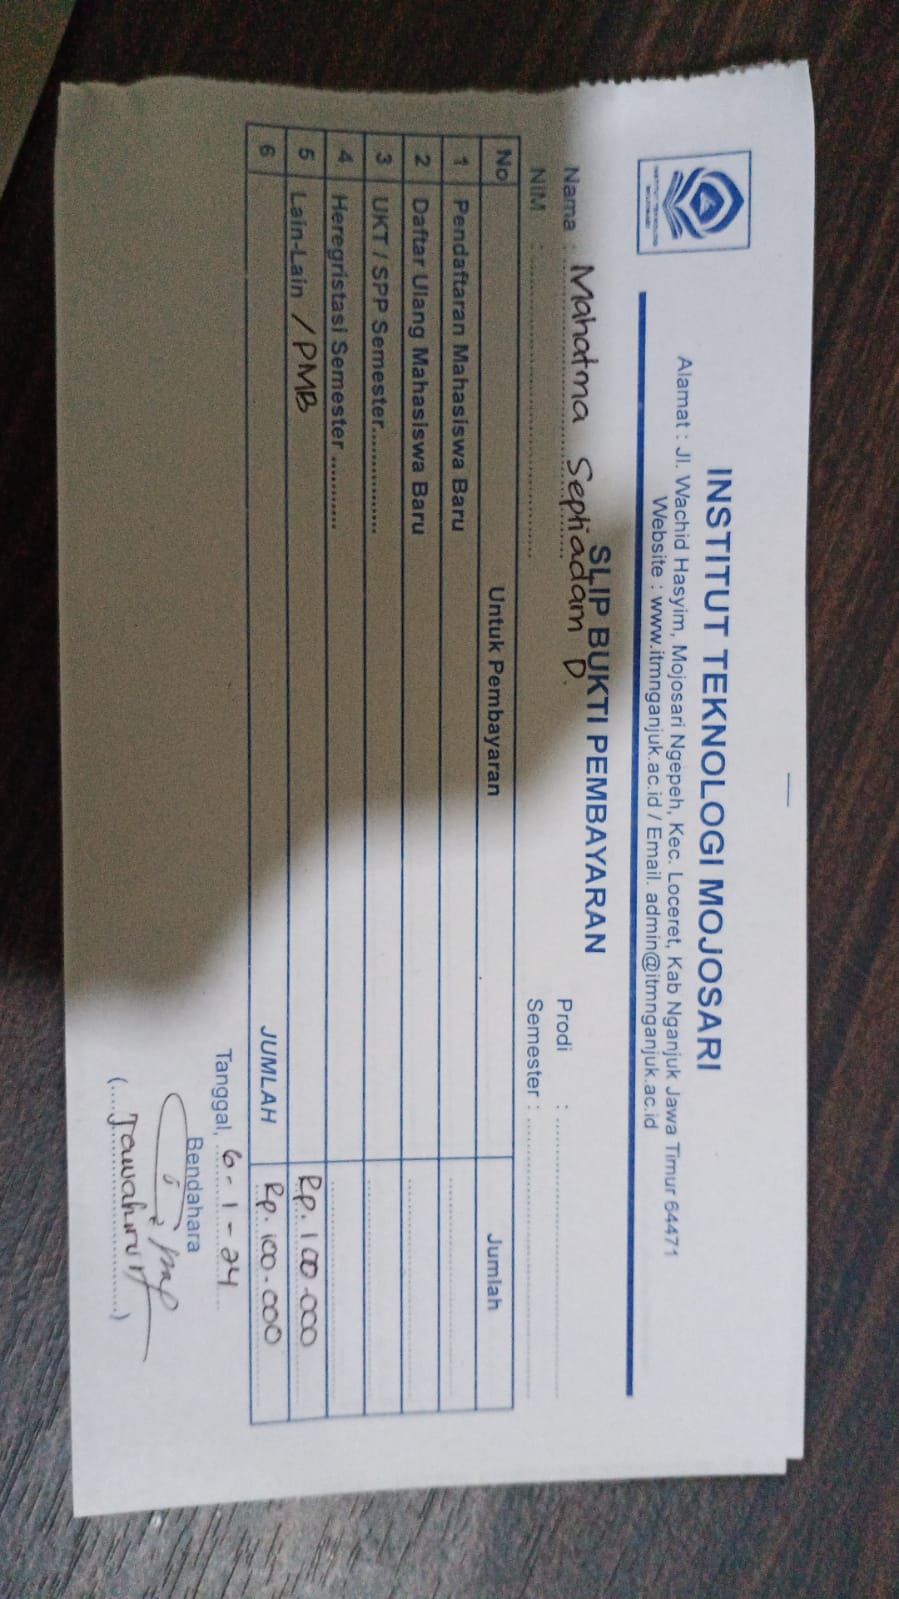 INSTITUT TEKNOLOGI MOJOSARI
Alamat : Jl. Wachid Hasyim, Mojosari Ngepeh, Kec. Loceret, Kab Nganjuk Jawa Timur 64471
Website : www.itmnganjuk.ac.id / Email. admin@itmnganjuk.ac.id
SLIP BUKTI PEMBAYARAN
Nama : Mahatma Septiadam D. Prodi :
NIM : Semester :
No Untuk Pembayaran Jumlah
1 Pendaftaran Mahasiswa Baru
2 Daftar Ulang Mahasiswa Baru
3 UKT / SPP Semester...............
4 Heregristasi Semester ...........
5 Lain-Lain / PMB Rp. 100.000
6 JUMLAH Rp. 100.000
Tanggal, 6-1-24
Bendahara